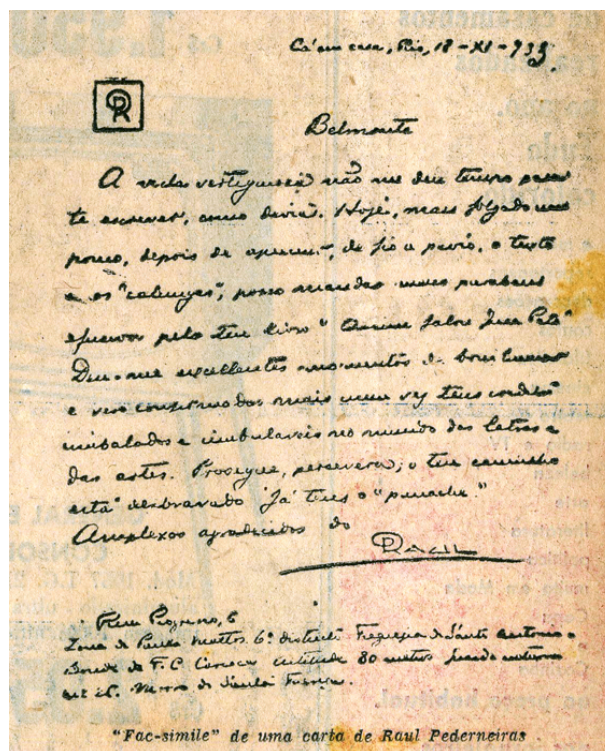 Cá em casa, Rio, 18-XI-933
Belmonte
A vida vertiginosa não me deu tempo para
te escrever, como devia. Hoje, mais folgado um
pouco, depois de apreciar, de fio a pavio, o texto
e os "calungas", posso mandar meus parabens
efusivos pelo teu livro "
Deu-me excellentes momentos de bom humor
e vejo confirmados mais uma vez teus
imbalados e imbalaveis no mundo das letras e
das artes. Prosegue, persevera; o teu caminho
está desbravado já tens o "panache."
Amplexos agradecidos do
RAUL
6
Zona de Paula Mattos 6º districto Freguezia de Santo Antonio
Bonde da F.C. Carioca altitude 80 metros
Morro de Santa Thereza.
"Fac-simile" de uma carta de Raul Pederneiras